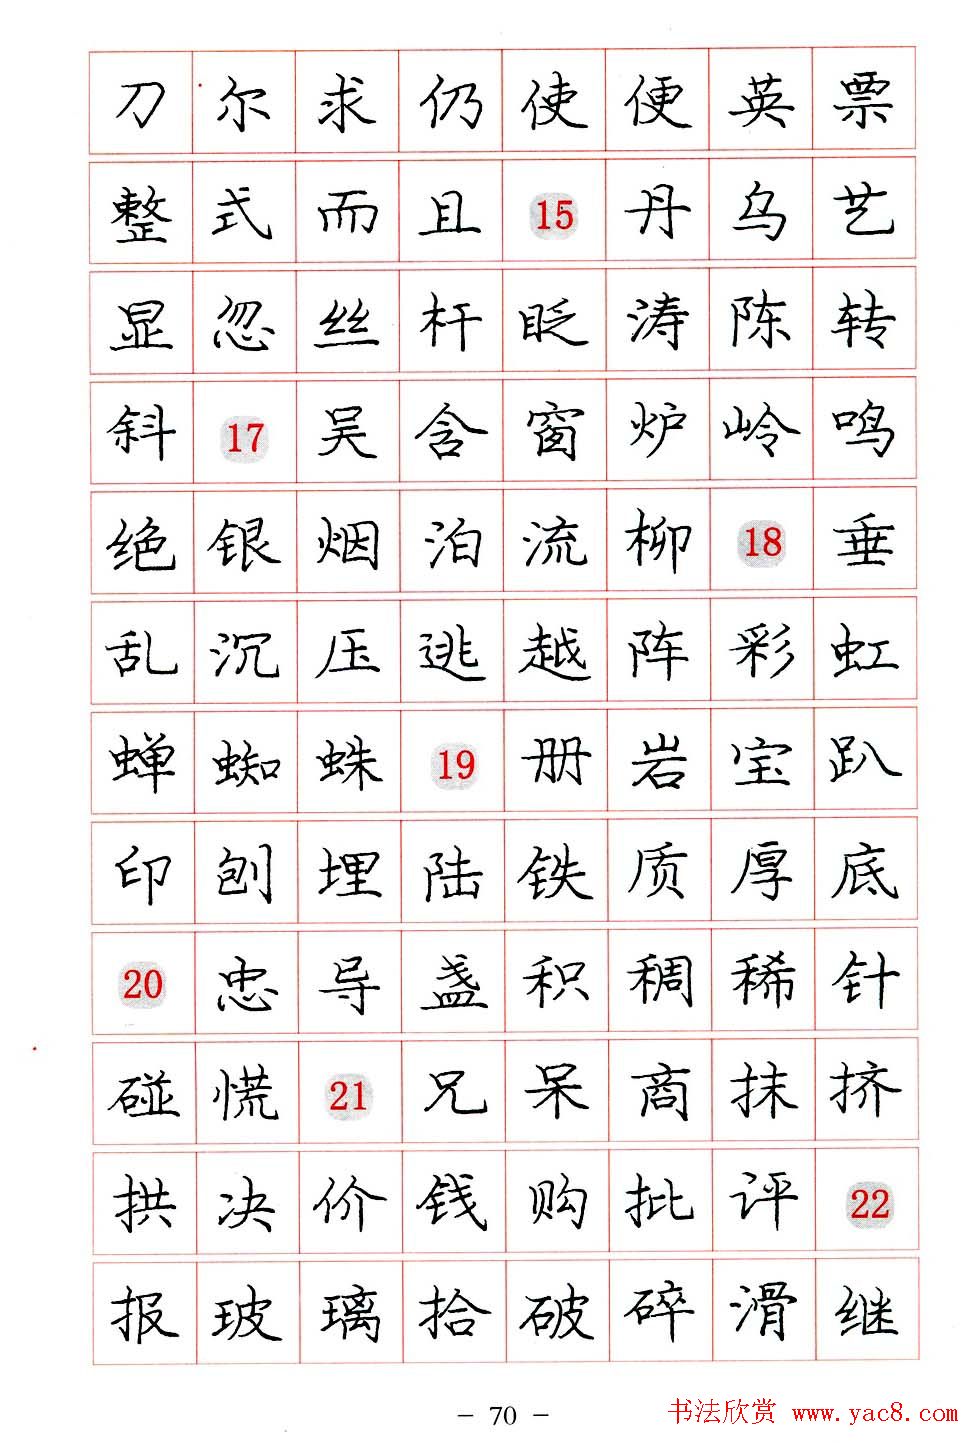 刀 尔 求 仍 使 便 英 票
整 式 而 且 15 丹 乌 艺
显 忽 丝 杆 眨 涛 陈 转
斜 17 吴 含 窗 炉 岭 鸣
绝 银 烟 泊 流 柳 18 垂
乱 沉 压 逃 越 阵 彩 虹
蝉 蜘 蛛 19 册 岩 宝 趴
印 刨 埋 陆 铁 质 厚 底
20 忠 导 盏 积 稠 稀 针
碰 慌 21 兄 呆 商 抹 挤
拱 决 价 钱 购 批 评 22
报 玻 璃 拾 破 碎 滑 继
- 70 -
书法欣赏 www.yac8.com